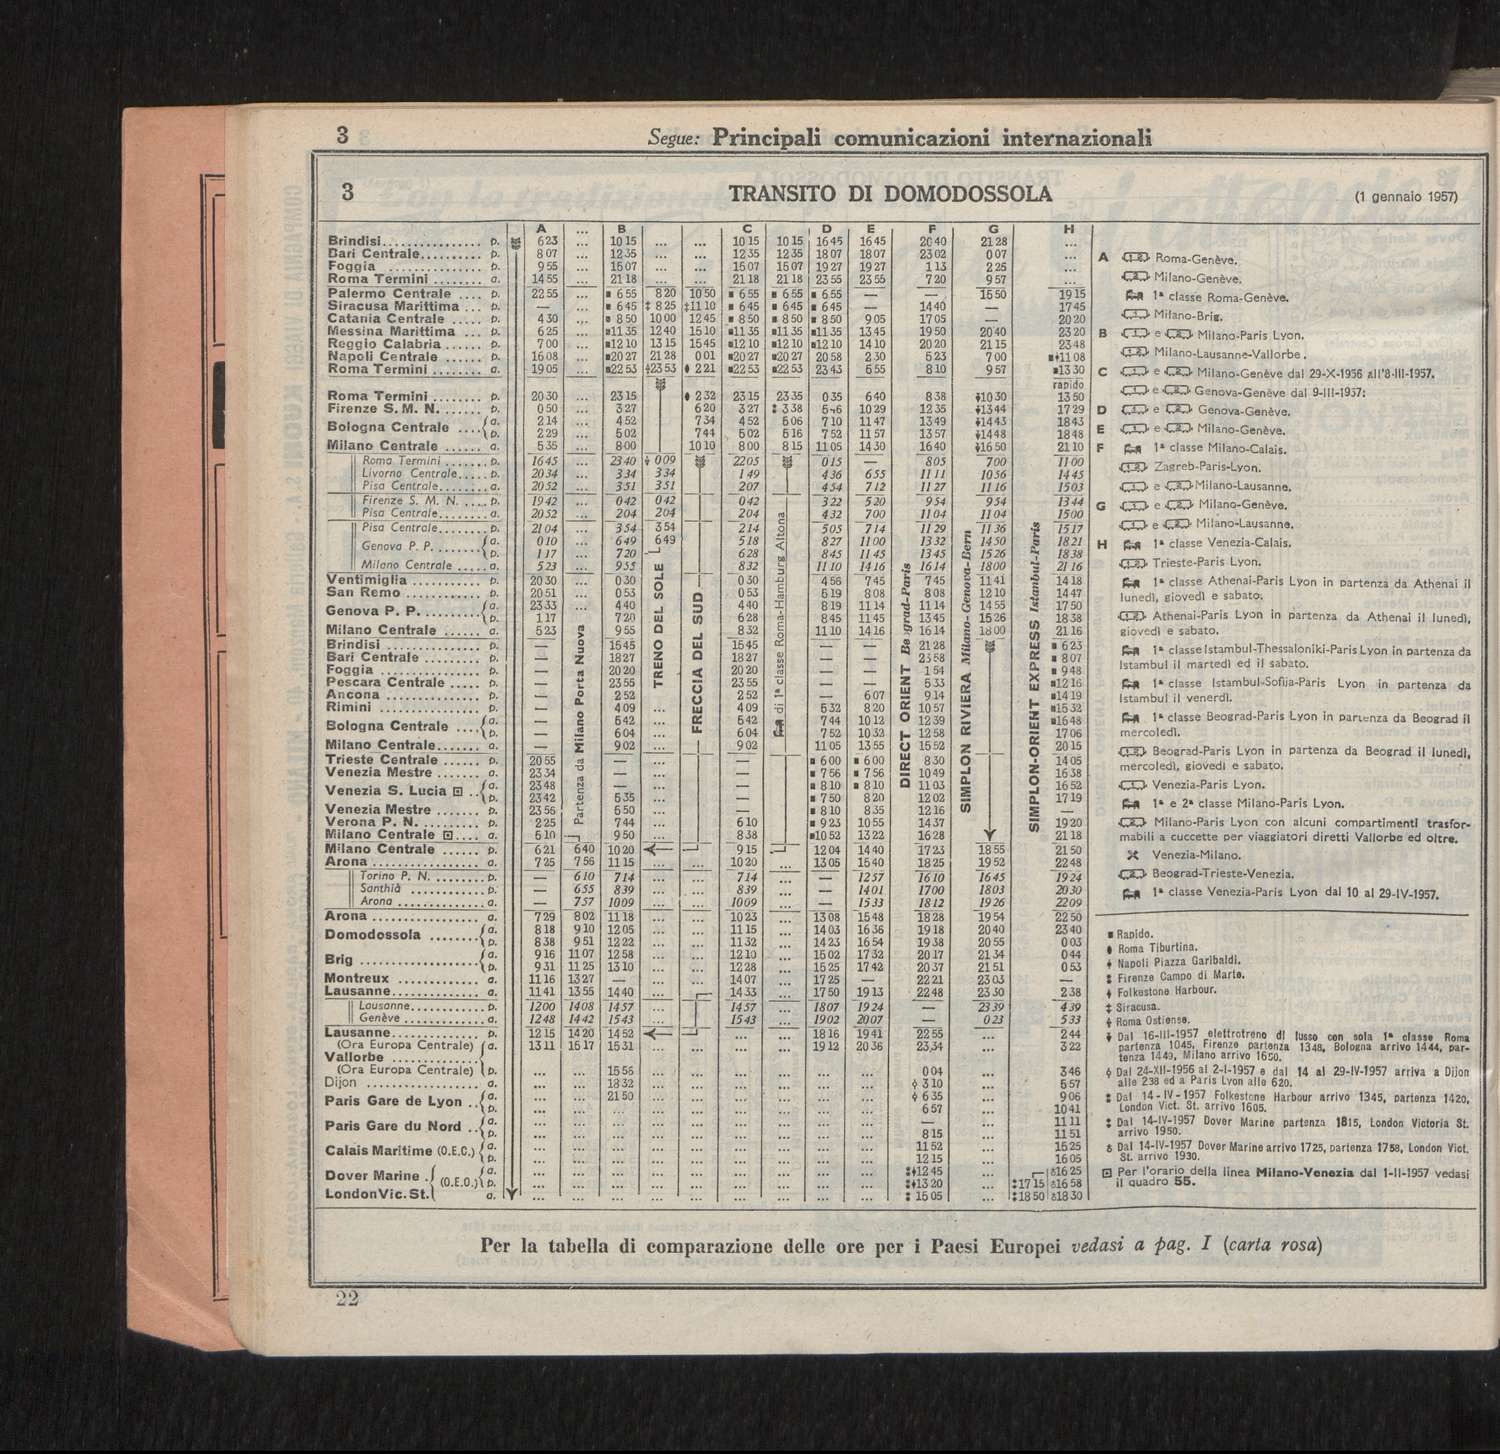 3
Segue: Principali comunicazioni internazionali
3 TRANSITO DI DOMODOSSOLA (1 gennaio 1957)
A ... B C D E F G H
Brindisi................ p. 6 23 ... 10 15 ... ... 10 15 10 15 16 45 16 45 20 40 21 28 ...
Bari Centrale.......... p. 8 07 ... 12 35 ... ... 12 35 12 35 18 07 18 07 23 02 0 07 ...
Foggia ................ p. 9 55 ... 15 07 ... ... 15 07 15 07 19 27 19 27 1 13 2 25 ...
Roma Termini ........ a. 14 55 ... 21 18 ... ... 21 18 21 18 23 55 23 55 7 20 9 57 ...
Palermo Centrale .... p. 22 55 ... ▪ 6 55 8 20 10 50 ▪ 6 55 ▪ 6 55 ▪ 6 55 — — 15 50 19 15
Siracusa Marittima ... p. — ... ▪ 6 45 ‡ 8 25 ‡11 10 ▪ 6 45 ▪ 6 45 ▪ 6 45 — 14 40 — 17 45
Catania Centrale ..... p. 4 30 ... ▪ 8 50 10 00 12 45 ▪ 8 50 ▪ 8 50 ▪ 8 50 9 05 17 05 — 20 20
Messina Marittima ... p. 6 25 ... ▪11 35 12 40 15 10 ▪11 35 ▪11 35 ▪11 35 13 45 19 50 20 40 23 20
Reggio Calabria ...... p. 7 00 ... ▪12 10 13 15 15 45 ▪12 10 ▪12 10 ▪12 10 14 10 20 20 21 15 23 48
Napoli Centrale ...... p. 16 08 ... ▪20 27 21 28 0 01 ▪20 27 ▪20 27 20 58 2 30 5 23 7 00 ▪♦11 08
Roma Termini ........ a. 19 05 ... ▪22 53 ‡23 53 ♦ 2 21 ▪22 53 ▪22 53 23 43 5 55 8 10 9 57 ▪13 30
rapido
Roma Termini ........ p. 20 30 ... 23 15 ♦ 2 32 23 15 23 35 0 35 6 40 8 38 ♦10 30 13 50
Firenze S. M. N. ...... p. 0 50 ... 3 27 6 20 3 27 3 38 5 46 10 29 12 35 ♦13 44 17 29
Bologna Centrale .... a. 2 14 ... 4 52 7 34 4 52 5 06 7 10 11 47 13 49 ♦14 43 18 43
p. 2 29 ... 5 02 7 44 5 02 5 16 7 52 11 57 13 57 ♦14 48 18 48
Milano Centrale ...... a. 5 35 ... 8 00 10 10 8 00 8 15 11 05 14 30 16 40 ♦16 50 21 10
Roma Termini ....... p. 16 45 ... 23 40 0 09 22 05 0 15 — 8 05 7 00 11 00
Livorno Centrale..... p. 20 34 ... 3 34 3 34 1 49 4 36 6 55 11 11 10 56 14 45
Pisa Centrale........ a. 20 52 ... 3 51 3 51 2 07 4 54 7 12 11 27 11 16 15 03
Firenze S. M. N. .... p. 19 42 ... 0 42 0 42 0 42 3 22 5 20 9 54 9 54 13 44
Pisa Centrale........ a. 20 52 ... 2 04 2 04 2 04 4 32 7 00 11 04 11 04 15 00
Pisa Centrale........ p. 21 04 ... 3 54 3 54 2 14 5 05 7 14 11 29 11 36 15 17
Genova P. P. ....... a. 0 10 ... 6 49 6 49 5 18 8 27 11 00 13 32 14 50 18 21
p. 1 17 ... 7 20 6 28 8 45 11 45 13 45 15 26 18 38
Milano Centrale ..... a. 5 23 ... 9 55 8 32 11 10 14 16 16 14 18 00 21 16
Ventimiglia ........... p. 20 30 ... 0 30 0 30 4 56 7 45 7 45 11 41 14 18
San Remo ............ p. 20 51 ... 0 53 0 53 5 19 8 08 8 08 12 10 14 47
Genova P. P. ......... a. 23 33 ... 4 40 4 40 8 19 11 14 11 14 14 55 17 50
p. 1 17 7 20 6 28 8 45 11 45 13 45 15 26 18 38
Milano Centrale ...... a. 5 23 9 55 8 32 11 10 14 16 16 14 18 00 21 16
Brindisi ............... p. — 15 45 15 45 — — 21 28 ▪ 6 23
Bari Centrale ......... p. — 18 27 18 27 — — 23 58 ▪ 8 07
Foggia ................ p. — 20 20 20 20 — — 1 54 ▪ 9 48
Pescara Centrale ..... p. — 23 55 23 55 — — 5 33 ▪12 16
Ancona ............... p. — 2 52 2 52 — 6 07 9 14 ▪14 19
Rimini ................ p. — 4 09 ... 4 09 5 32 8 20 10 57 ▪15 32
Bologna Centrale .... a. — 5 42 ... 5 42 7 44 10 12 12 39 ▪16 48
p. — 6 04 ... 6 04 7 52 10 32 12 58 17 06
Milano Centrale....... a. — 9 02 ... 9 02 11 05 13 55 15 52 20 15
Trieste Centrale ...... p. 20 55 — ... — ▪ 6 00 ▪ 6 00 8 30 14 05
Venezia Mestre ....... a. 23 34 — ... — ▪ 7 56 ▪ 7 56 10 49 16 38
Venezia S. Lucia ⊡ .. a. 23 48 — ... — ▪ 8 10 ▪ 8 10 11 03 16 52
p. 23 42 5 35 ... — ▪ 7 50 8 20 12 02 17 19
Venezia Mestre ....... p. 23 56 5 50 ... — ▪ 8 10 8 35 12 16 —
Verona P. N. ......... p. 2 25 7 44 ... 6 10 ▪ 9 23 10 55 14 37 19 20
Milano Centrale ⊡.... a. 6 10 9 50 ... 8 38 ▪10 52 13 22 16 28 21 18
Milano Centrale ...... p. 6 21 6 40 10 20 9 15 12 04 14 40 17 23 18 55 21 50
Arona ................. a. 7 25 7 56 11 15 ... ... 10 20 ... 13 05 15 40 18 25 19 52 22 48
Torino P. N. ......... p. — 6 10 7 14 ... ... 7 14 ... — 12 57 16 10 16 45 19 24
Santhià ............. p. — 6 55 8 39 ... ... 8 39 ... — 14 01 17 00 18 03 20 30
Arona ............... a. — 7 57 10 09 ... ... 10 09 ... — 15 33 18 12 19 26 22 09
Arona ................. a. 7 29 8 02 11 18 ... ... 10 23 ... 13 08 15 48 18 28 19 54 22 50
Domodossola ........ a. 8 18 9 10 12 05 ... ... 11 15 ... 14 03 16 36 19 18 20 40 23 40
p. 8 38 9 51 12 22 ... ... 11 32 ... 14 23 16 54 19 38 20 55 0 03
Brig ................... a. 9 16 11 07 12 58 ... ... 12 10 ... 15 02 17 32 20 17 21 34 0 44
p. 9 31 11 25 13 10 ... ... 12 28 ... 15 25 17 42 20 37 21 51 0 53
Montreux ............ a. 11 16 13 27 — ... ... 14 07 ... 17 25 — 22 21 23 03 —
Lausanne.............. a. 11 41 13 55 14 40 ... 14 33 ... 17 50 19 13 22 48 23 30 2 38
Lausanne............ p. 12 00 14 08 14 57 ... 14 57 ... 18 07 19 24 — 23 39 4 39
Genève ............. a. 12 48 14 42 15 43 ... 15 43 ... 19 02 20 07 — 0 23 5 33
Lausanne.............. p. 12 15 14 20 14 52 ... ... 18 16 19 41 22 55 ... 2 44
(Ora Europa Centrale) a. 13 11 15 17 15 31 ... ... ... ... 19 12 20 36 23,34 ... 3 22
Vallorbe ..............
(Ora Europa Centrale) p. ... ... 15 56 ... ... ... ... ... ... 0 04 ... 3 46
Dijon .................. a. ... ... 18 32 ... ... ... ... ... ... ◊ 3 10 ... 5 57
Paris Gare de Lyon .. a. ... ... 21 50 ... ... ... ... ... ... ◊ 6 35 ... 9 06
p. ... ... ... ... ... ... ... ... ... 6 57 ... 10 41
Paris Gare du Nord .. a. ... ... ... ... ... ... ... ... ... — ... 11 11
p. ... ... ... ... ... ... ... ... ... 8 15 ... 11 51
Calais Maritime (O.E.C.) a. ... ... ... ... ... ... ... ... ... 11 52 ... 15 25
p. ... ... ... ... ... ... ... ... ... 12 15 ... 16 05
Dover Marine . (O.E.O.) a. ... ... ... ... ... ... ... ... ... 12 45 ... 16 25
p. ... ... ... ... ... ... ... ... ... 13 20 ... 17 15 16 58
London Vic. St. a. ... ... ... ... ... ... ... ... ... 15 05 ... 18 50 18 30
Partenza da Milano Porta Nuova
TRENO DEL SOLE
FRECCIA DEL SUD
di 1ª classe Roma-Hamburg Altona
DIRECT ORIENT Beograd-Paris
SIMPLON RIVIERA Milano-Genova-Bern
SIMPLON-ORIENT EXPRESS Istanbul-Paris
A Roma-Genève.
Milano-Genève.
1ª classe Roma-Genève.
Milano-Brig.
B e Milano-Paris Lyon.
Milano-Lausanne-Vallorbe.
C e Milano-Genève dal 29-X-1956 all'8-III-1957.
e Genova-Genève dal 9-III-1957:
D e Genova-Genève.
E e Milano-Genève.
F 1ª classe Milano-Calais.
Zagreb-Paris-Lyon.
e Milano-Lausanne.
G e Milano-Genève.
e Milano-Lausanne.
H 1ª classe Venezia-Calais.
Trieste-Paris Lyon.
1ª classe Athenai-Paris Lyon in partenza da Athenai il
lunedì, giovedì e sabato.
Athenai-Paris Lyon in partenza da Athenai il lunedì,
giovedì e sabato.
1ª classe Istanbul-Thessaloniki-Paris Lyon in partenza da
Istambul il martedì ed il sabato.
1ª classe Istambul-Sofija-Paris Lyon in partenza da
Istambul il venerdì.
1ª classe Beograd-Paris Lyon in partenza da Beograd il
mercoledì.
Beograd-Paris Lyon in partenza da Beograd il lunedì,
mercoledì, giovedì e sabato.
Venezia-Paris Lyon.
1ª e 2ª classe Milano-Paris Lyon.
Milano-Paris Lyon con alcuni compartimenti trasfor-
mabili a cuccette per viaggiatori diretti Vallorbe ed oltre.
Venezia-Milano.
Beograd-Trieste-Venezia.
1ª classe Venezia-Paris Lyon dal 10 al 29-IV-1957.
▪ Rapido.
♦ Roma Tiburtina.
Napoli Piazza Garibaldi.
Firenze Campo di Marte.
Folkestone Harbour.
‡ Siracusa.
Roma Ostiense.
Dal 16-III-1957 elettrotreno di lusso con sola 1ª classe Roma
partenza 1045, Firenze partenza 1348, Bologna arrivo 1444, par-
tenza 1449, Milano arrivo 1650.
◊ Dal 24-XII-1956 al 2-I-1957 e dal 14 al 29-IV-1957 arriva a Dijon
alle 238 ed a Paris Lyon alle 620.
Dal 14-IV-1957 Folkestone Harbour arrivo 1345, partenza 1420,
London Vict. St. arrivo 1605.
Dal 14-IV-1957 Dover Marine partenza 1815, London Victoria St.
arrivo 1950.
Dal 14-IV-1957 Dover Marine arrivo 1725, partenza 1758, London Vict.
St. arrivo 1930.
⊡ Per l'orario della linea Milano-Venezia dal 1-II-1957 vedasi
il quadro 55.
Per la tabella di comparazione delle ore per i Paesi Europei vedasi a pag. I (carta rosa)
22